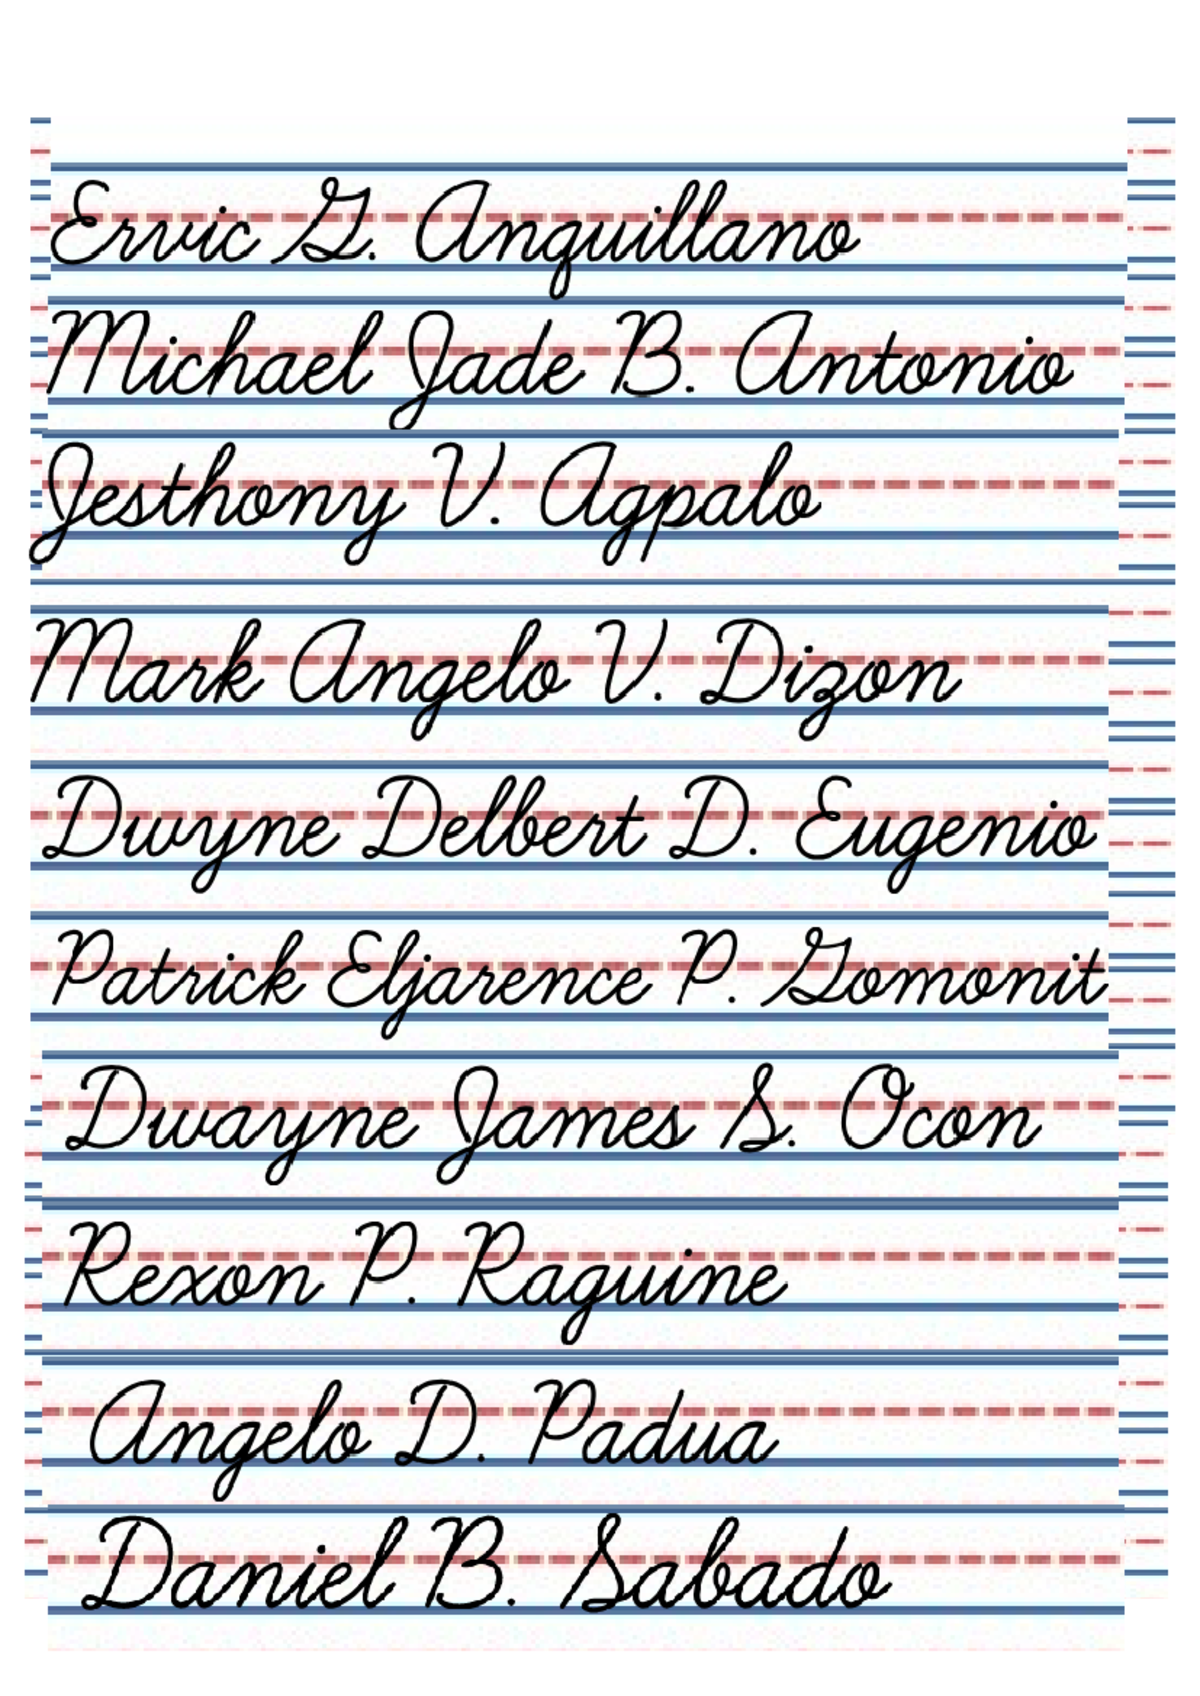 Ervic G. Anquillano
Michael Jade B. Antonio
Jesthony V. Agpalo
Mark Angelo V. Dizon
Dwyne Delbert D. Eugenio
Patrick Eljarence P. Gomonit
Dwayne James S. Ocon
Rexon P. Raguine
Angelo D. Padua
Daniel B. Sabado